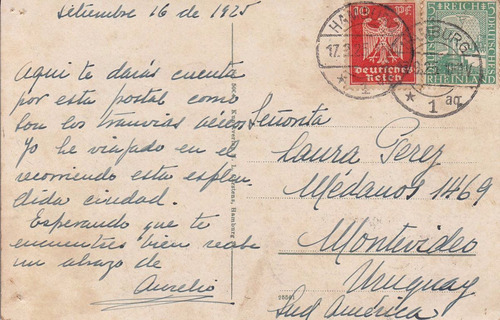 setiembre 16 de 1925
Aqui te darás cuenta
por esta postal como
son los tranvias aéreos
Yo he viajado en el
recorriendo esta esplen-
dida ciudad.
Esperando que te
encuentres bien recibe
un abrazo de
Aurelio
Hamburg
10 PF
Deutsches
Reich
17.9.
HAMBURG
1 aq
5 REICH 5
RHEINLAND
Señorita
Laura Perez
Médanos 1469
Montevideo
Uruguay
Sud América